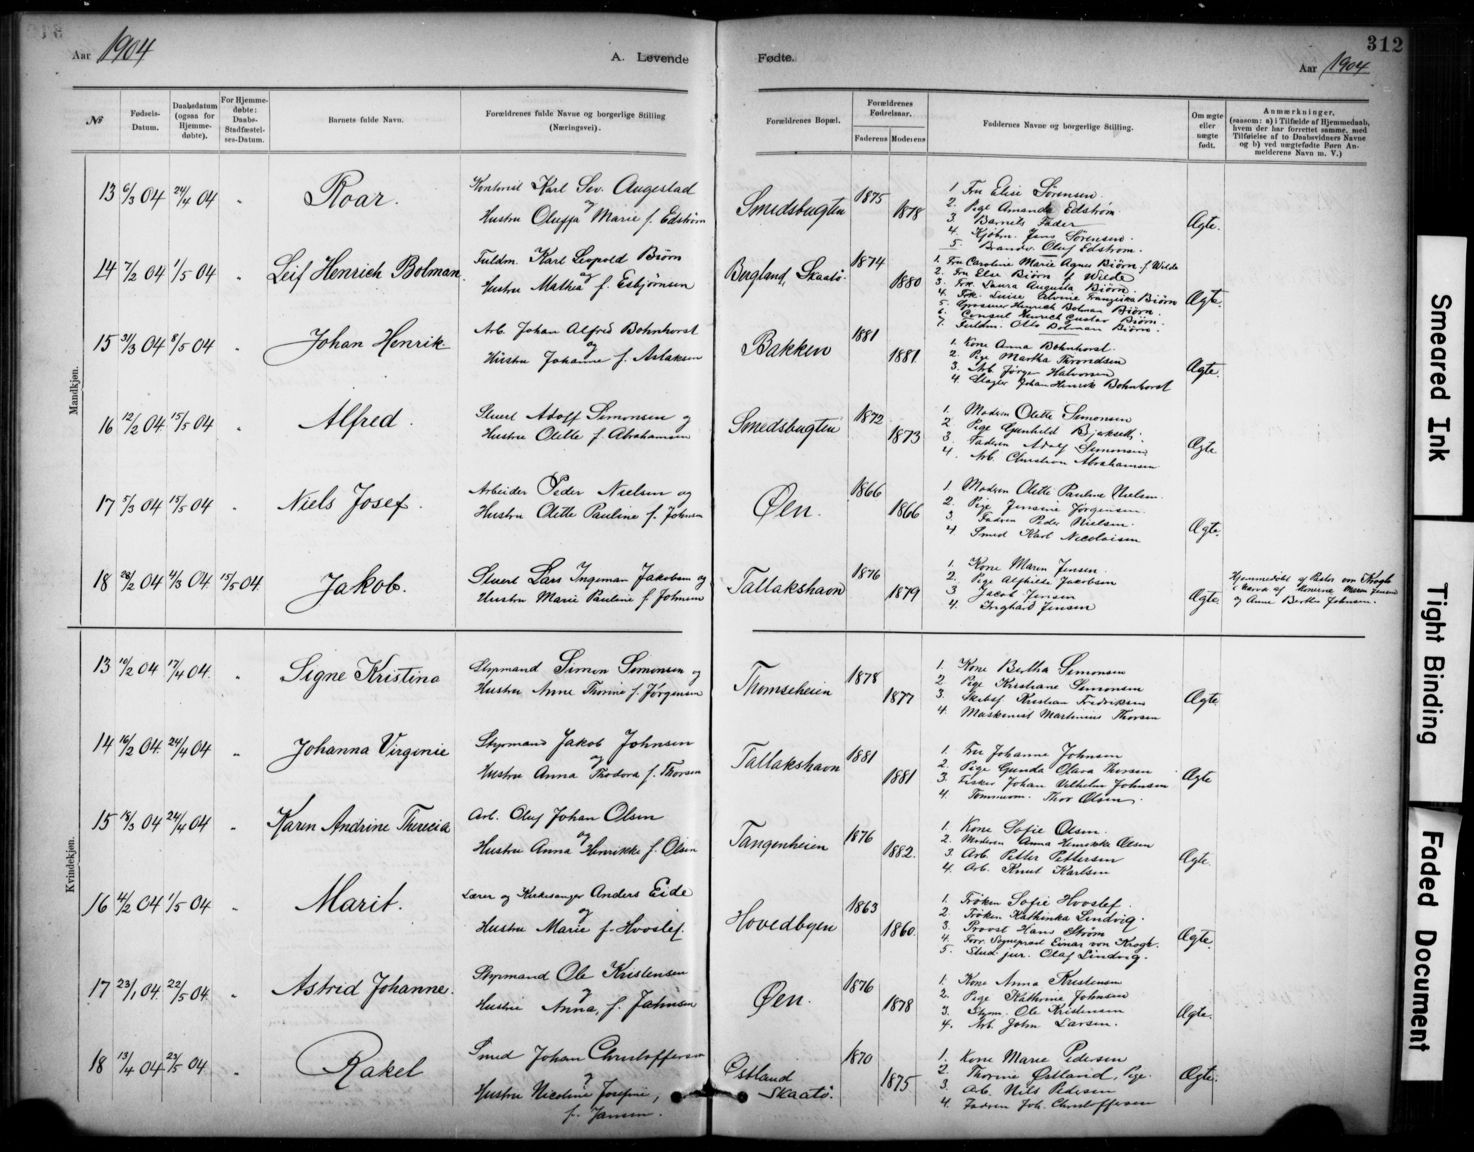 Aar 1904
A. Levende
Fødte.
312
Aar 1904
№
Fødsels-Datum.
Daabsdatum (ogsaa for Hjemmedøbte).
For Hjemmedøbte: Daabs-Stadfæstelses-Datum.
Barnets fulde Navn.
Forældrenes fulde Navne og borgerlige Stilling (Næringsvei).
Forældrenes Bopæl.
Forældrenes Fødselsaar.
Faderens
Moderens
Faddernes Navne og borgerlige Stilling.
Om ægte eller uægte født.
Anmærkninger. (saasom: a) i Tilfælde af Hjemmedaab, hvem der har forrettet samme, med Tilføielse af to Daabsvidners Navne og b) ved uægtefødte Børn Anmelderens Navn m. V.)
Mandkjøn.
13 6/3 04 24/4 04 " Roar.
Kontorist Karl Sev. Augestad
og
Hustru Oluffa Marie f. Edstrøm
Smedsbugten 1875 1878
1. Fru Elise Sørensen
2. Pige Amanda Edstrøm
3. Barnets Fader
4. Kjøbm. Jens Sørensen.
5. Brandv. Oluf Edstrøm.
Ægte.
14 7/2 04 1/5 04 " Leif Henrich Bolman.
Fuldm. Karl Leopold Biørn
og
Hustru Mathea f. Esbjörnsen
Bergland, Skaatø. 1874 1880
1. Fru Caroline Marie Agnes Biørn f. Wilde
2. Fru Else Biørn f. Wilde
3. Frk. Laura Augusta Biørn.
4. Frk. Luise Elvine Franziska Biørn
5. Grosserer Henrich Bolman Biørn.
6. Consul Henrich Gustav Biørn.
7. Fuldm. Otto Bolman Biørn.
Ægte.
15 31/3 04 8/5 04 " Johan Henrik
Arb. Johan Alfred Bohnhorst
og
Hustru Johanne f. Aslaksen
Bakken 1881 1881
1. Kone Anna Bohnhorst.
2. Pige Martha Throndsen
3. Arb. Jørgen Halvorsen
4. Slagter Johan Henrik Bohnhorst
Ægte.
16 12/2 04 15/5 04 " Alfred.
Stuert Adolf Simonsen og
Hustru Olette f. Abrahamsen
Smedsbugten 1872 1873
1. Modren Olette Simonsen
2. Pige Gunhild
3. Faderen Adolf Simonsen
4. Arb. Christian Abrahamsen
Ægte.
17 5/3 04 15/5 04 " Niels Josef.
Arbeider Peder Nielsen og
Hustru Olette Pauline f. Johnsen
Øen. 1866 1866
1. Modren Olette Pauline Nielsen.
2. Pige Jensine Jørgensen.
3. Fadren Peder Nielsen.
4. Smed Karl Nicolaisen
Ægte.
18 28/2 04 4/3 04 15/5 04 Jakob.
Stuert Lars Ingeman Jakobsen og
Hustru Marie Pauline f. Johnsen
Tallakshavn 1876 1879
1. Kone Maren Jensen.
2. Pige Jacobsen
3. Jacob Jensen
4. Inghard Jensen
Ægte.
Hjemmedøbt af Pastor von Krogh
i Nærvær af Konerne Maren Jensen
og Anne Berthe Johnsen.
Kvindekjøn.
13 10/2 04 17/4 04. " Signe Kristina
Styrmand Simon Simonsen og
Hustru Anne Thorine f. Jørgensen
Thomseheien 1878 1877
1. Kone Bertha Simonsen
2. Pige Kristiane Simonsen
3. Skibsf. Kristian Fredriksen
4. Maskinist Martinius Thorsen
Ægte
14 16/2 04 24/4 04 " Johanna Virginie
Styrmand Jakob Johnsen
og
Hustru Anna Thodora f. Thorsen
Tallakshavn 1881 1881
1. Fru Johanne Johnsen
2. Pige Gunda Olava Thorsen
3. Fisker Johan Vilhelm Johnsen
4. Tømmerm. Thor Olsen.
Ægte
15 18/3 04 24/4 04 " Karen Andrine Therecia
Arb. Oluf Johan Olsen
og
Hustru Anna Henrikke f. Olsen
Tangenheien 1876 1882.
1. Kone Sofie Olsen.
2. Moderen Anna Henrikke Olsen
3. Arb. Petter Pettersen
4. Arb. Knut Karlsen
Ægte.
16 4/2 04 1/5 04 " Marit.
Lærer og Kirkesanger Anders Eide
og
Hustru Marie f. Hovslef.
Hovedbyen 1863 1860.
1. Frøken Sofie Hovslef.
2. Frøken Kathinka Lindvig.
3. Provst Hans Strøm
4. Forr. Sogneprest Einar von Krogh.
5. Stud. jur. Olaf Lindvig.
Ægte.
17 23/1 04. 22/5 04. " Astrid Johanne.
Styrmand Ole Kristensen
og
Hustru Anna, f. Johnsen
Øen. 1876 1878
1. Kone Anna Kristensen
2. Pige Kathrine Johnsen
3. Styrm. Ole Kristensen
4. Arb. John Larsen.
Ægte.
18 13/4 04 23/5 04 " Rakel
Smed Johan Christoffersen
og
Hustru Nicoline Josefine,
f. Jansen.
Østland
Skaatø. 1870 1875
1. Kone Marie Pedersen
2. Thorine Østland, Pige.
3. Arb. Nils Pedersen
4. Fadren Joh. Christoffersen
Ægte.
Smeared Ink
Tight Binding
Faded Document